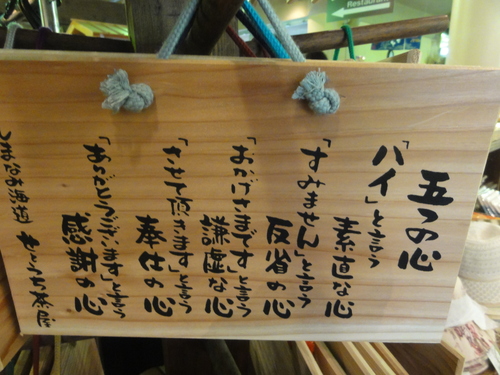 五つの心
「ハイ」と言う
素直な心
「すみません」と言う
反省の心
「おかげさまです」と言う
謙虚な心
「させて頂きます」と言う
奉仕の心
「ありがとうございます」と言う
感謝の心
しまなみ海道 せとうち茶屋
Restaurant